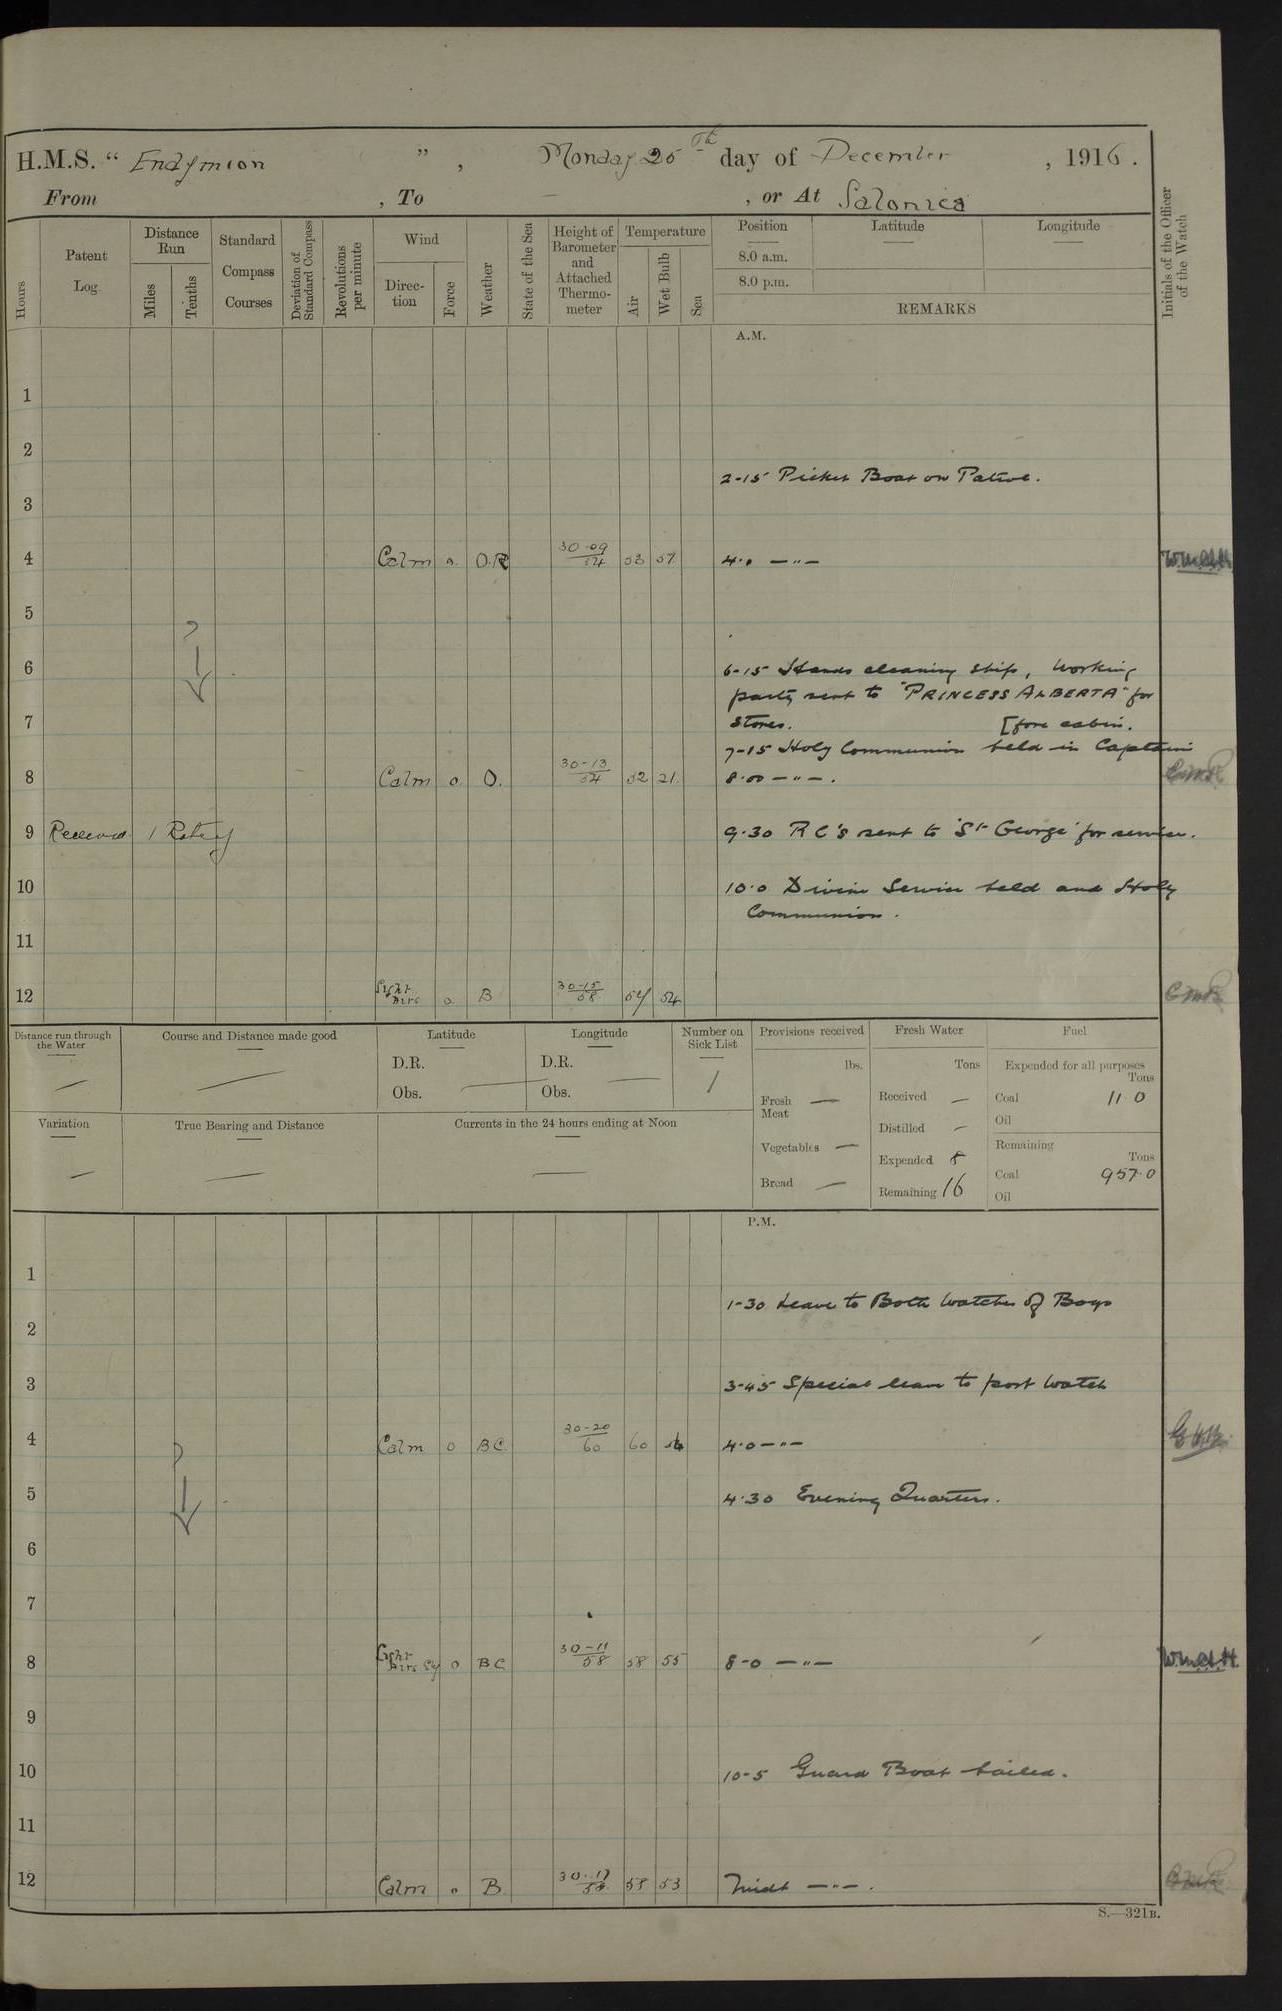 H.M.S. " Endymion ", Monday 25th day of December, 1916.
From , To — , or At Salonica
Hours
Patent Log
Distance Run
Miles
Tenths
Standard Compass Courses
Deviation of Standard Compass
Revolutions per minute
Wind
Direction
Force
Weather
State of the Sea
Height of Barometer and Attached Thermometer
Temperature
Air
Wet Bulb
Sea
Position
Latitude
Longitude
8.0 a.m.
8.0 p.m.
REMARKS
Initials of the Officer of the Watch
A.M.
1
2
2-15 Picket Boat on Patrol.
3
4 Calm o. O.R 30-09/54 53 4.0 — " —
5
6
6-15 Hands cleaning ship, Working
party sent to "PRINCESS ALBERTA" for
7 stores. [fore cabin.
7-15 Holy Communion held in Captain
8 Calm o O. 30-13/54 52 8.00 — " — .
9 Received 1 Rating 9.30 R C's sent to 'St George' for service.
10 10.0 Divine Service held and Holy
Communion.
11
12 Light Airs o B 30-15/58 54
Distance run through the Water
—
Course and Distance made good
—
Latitude
D.R.
Obs. —
Longitude
D.R.
Obs. —
Number on Sick List
1
Provisions received
lbs.
Fresh Meat —
Vegetables —
Bread —
Fresh Water
Tons
Received —
Distilled —
Expended 8
Remaining 16
Fuel
Expended for all purposes
Tons
Coal 11 0
Oil
Remaining
Tons
Coal 957.0
Oil
Variation
—
True Bearing and Distance
—
Currents in the 24 hours ending at Noon
—
P.M.
1
1-30 Leave to Both Watches of Boys
2
3 3-45 Special leave to port Watch
4 Calm o BC 30-20/60 60 4.0 — " —
5 4.30 Evening Quarters.
6
7
8 Light Airs o BC 30-11/58 58 55 8-0 — " — W.McC.H.
9
10 10-5 Guard Boat hailed.
11
12 Calm o B. 53 Midt — " — .
S.—321B.